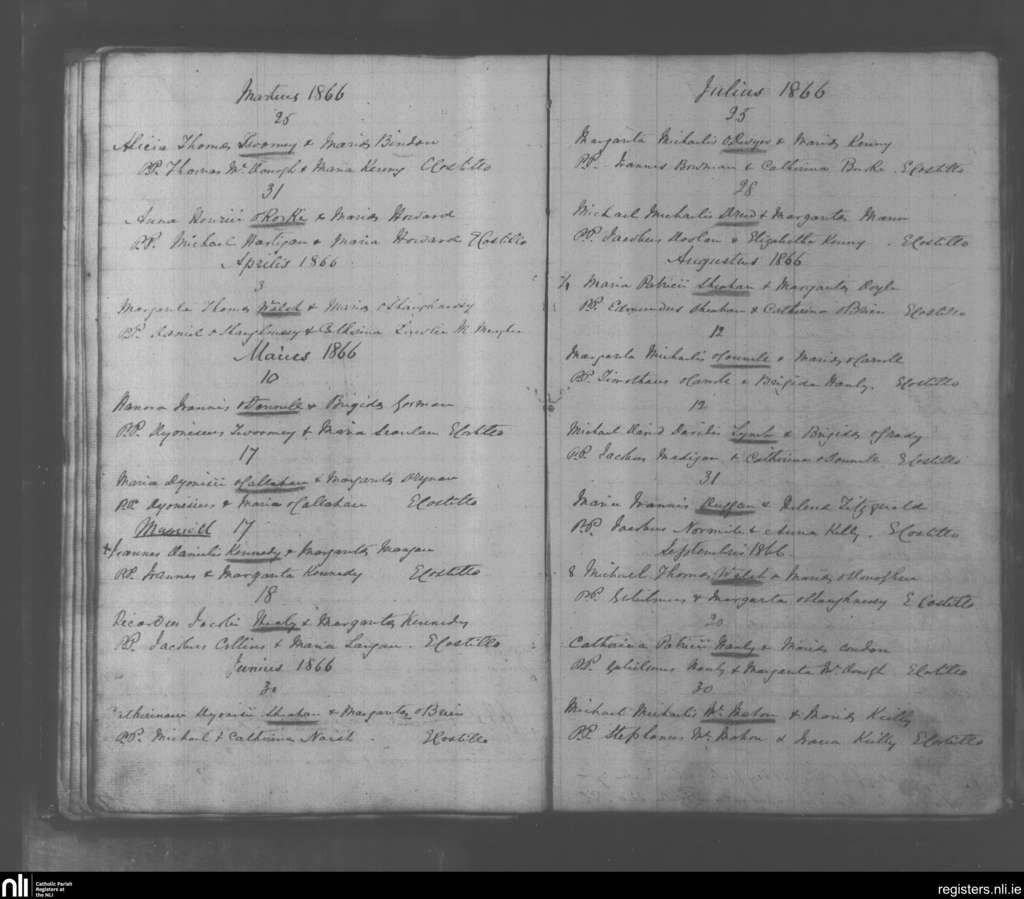 Martius 1866
25
Alicia Thomæ Twomey & Mariæ Bindon
PP. Thomas Mc Donogh & Maria Kenny ECostillo
31
Anna Henrici oRorke & Mariæ Howard
PP. Michael Hartigan & Maria Howard ECostillo
Aprilis 1866
3
Margarita Thomæ Walsh & Mariæ oShaughnessy
PP. Daniel oShaughnessy & Catherina
Maius 1866
10
Hanora Joannis oDonnell & Brigidæ Gorman
PP. Dyonisius Twoomey & Maria Scanlan ECostillo
17
Maria Dyonisii oCallahan & Margaritæ
PP. Dyonisius & Maria oCallahan ECostillo
17
Joannes Danielis Kennedy & Margaritæ Mangan
PP. Joannes & Margarita Kennedy ECostillo
18
Ricardus Jacobi Healy & Margaritæ Kennedy
PP. Jacobus Collins & Maria ECostillo
Junius 1866
30
Catherinam Dyonisii Sheahan & Margaritæ oBrien
PP. Michael & Catherina Nash ECostillo
Julius 1866
25
Margarita Michaelis ODwyer & Mariæ Kenny
PP. Joannes Bowman & Catherina Burke. ECostillo
28
Michael Michaelis & Margaritæ Mann
PP. Jacobus & Elizabetha Kenny. ECostillo
Augustus 1866
Maria Patricii Sheahan & Margaritæ Doyle
PP. Edmundus Sheahan & Catherina OBrien ECostillo
12
Margarita Michaelis oConnell & Mariæ oCarroll
PP. Timotheus oCarroll & Brigida Hanly. ECostillo
12
Michael David Davidis Lynch & Brigidæ oGrady
P.P. Jacobus Madigan & Catherina oDonnell ECostillo
31
Maria Joannis Duggan & Helenæ Fitzgerald
PP. Jacobus Normile & Anna Kelly. ECostillo
Septembris 1866
8 Michael Thomæ Walsh & Mariæ
PP. Gulielmus & Margarita oShaughnessy ECostillo
20
Catherina Patricii Hanly & Mariæ Condon
PP. Gulielmus Hanly & Margarita Mc Donogh ECostillo
30
Michael Michaelis Mc Mahon & Mariæ Kielly
PP. Stephanus Mc Mahon & Joana Kielly ECostillo
nli
Catholic Parish
Registers at
the NLI
registers.nli.ie